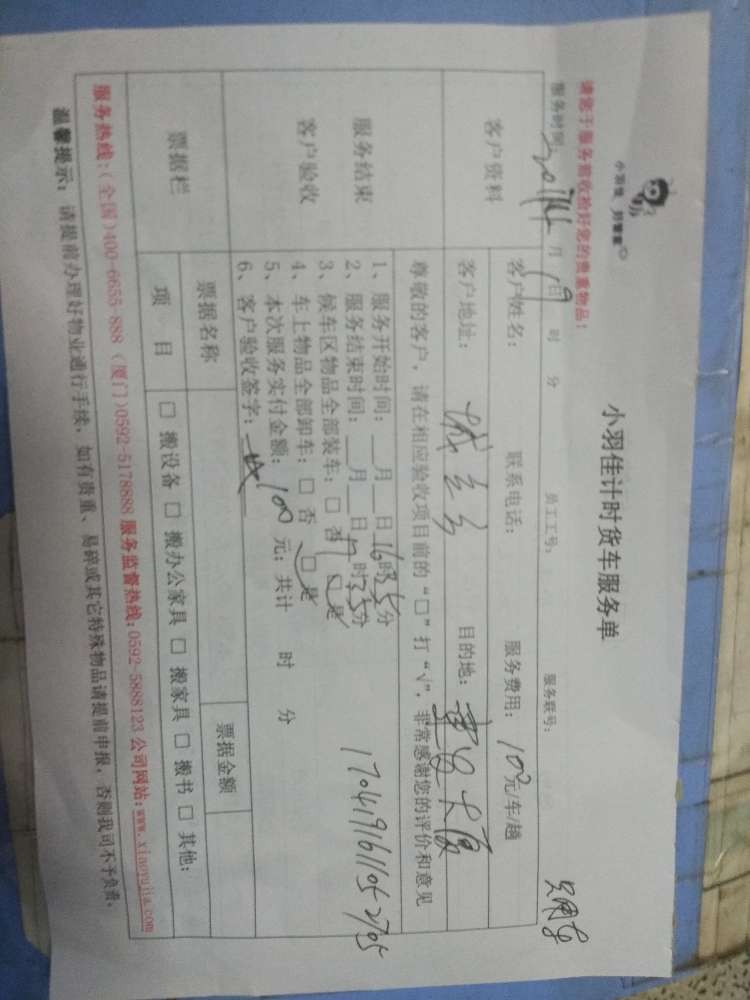 小羽佳 好管家
小羽佳计时货车服务单
请您于服务前收检好您的贵重物品！
服务时间： 月19日 时 分 员工工号： 服务联号：
客户资料
客户姓名： 联系电话： 服务费用：100元/车/趟
客户地址： 目的地： 大厦
尊敬的客户，请在相应验收项目前的“□”打“√”，非常感谢您的评价和意见
服务结束
客户验收
1、服务开始时间：__月__日16时35分
2、服务结束时间：__月__日17时35分
3、候车区物品全部装车：□ 否 □ 是
4、车上物品全部卸车：□ 否 □ 是
5、本次服务实付金额：100元；共计 时 分
6、客户验收签字：
1704191611052705
票据栏
票据名称 票据金额
项 目 □ 搬设备 □ 搬办公家具 □ 搬家具 □ 搬书 □ 其他：
服务热线：(全国)400-6655 888 (厦门)0592-5178888 服务监督热线：0592-5888123 公司网站：www.xiaoyujia.com
温馨提示：请提前办理好物业通行手续，如有贵重、易碎或其它特殊物品请提前申报，否则我司不予负责。